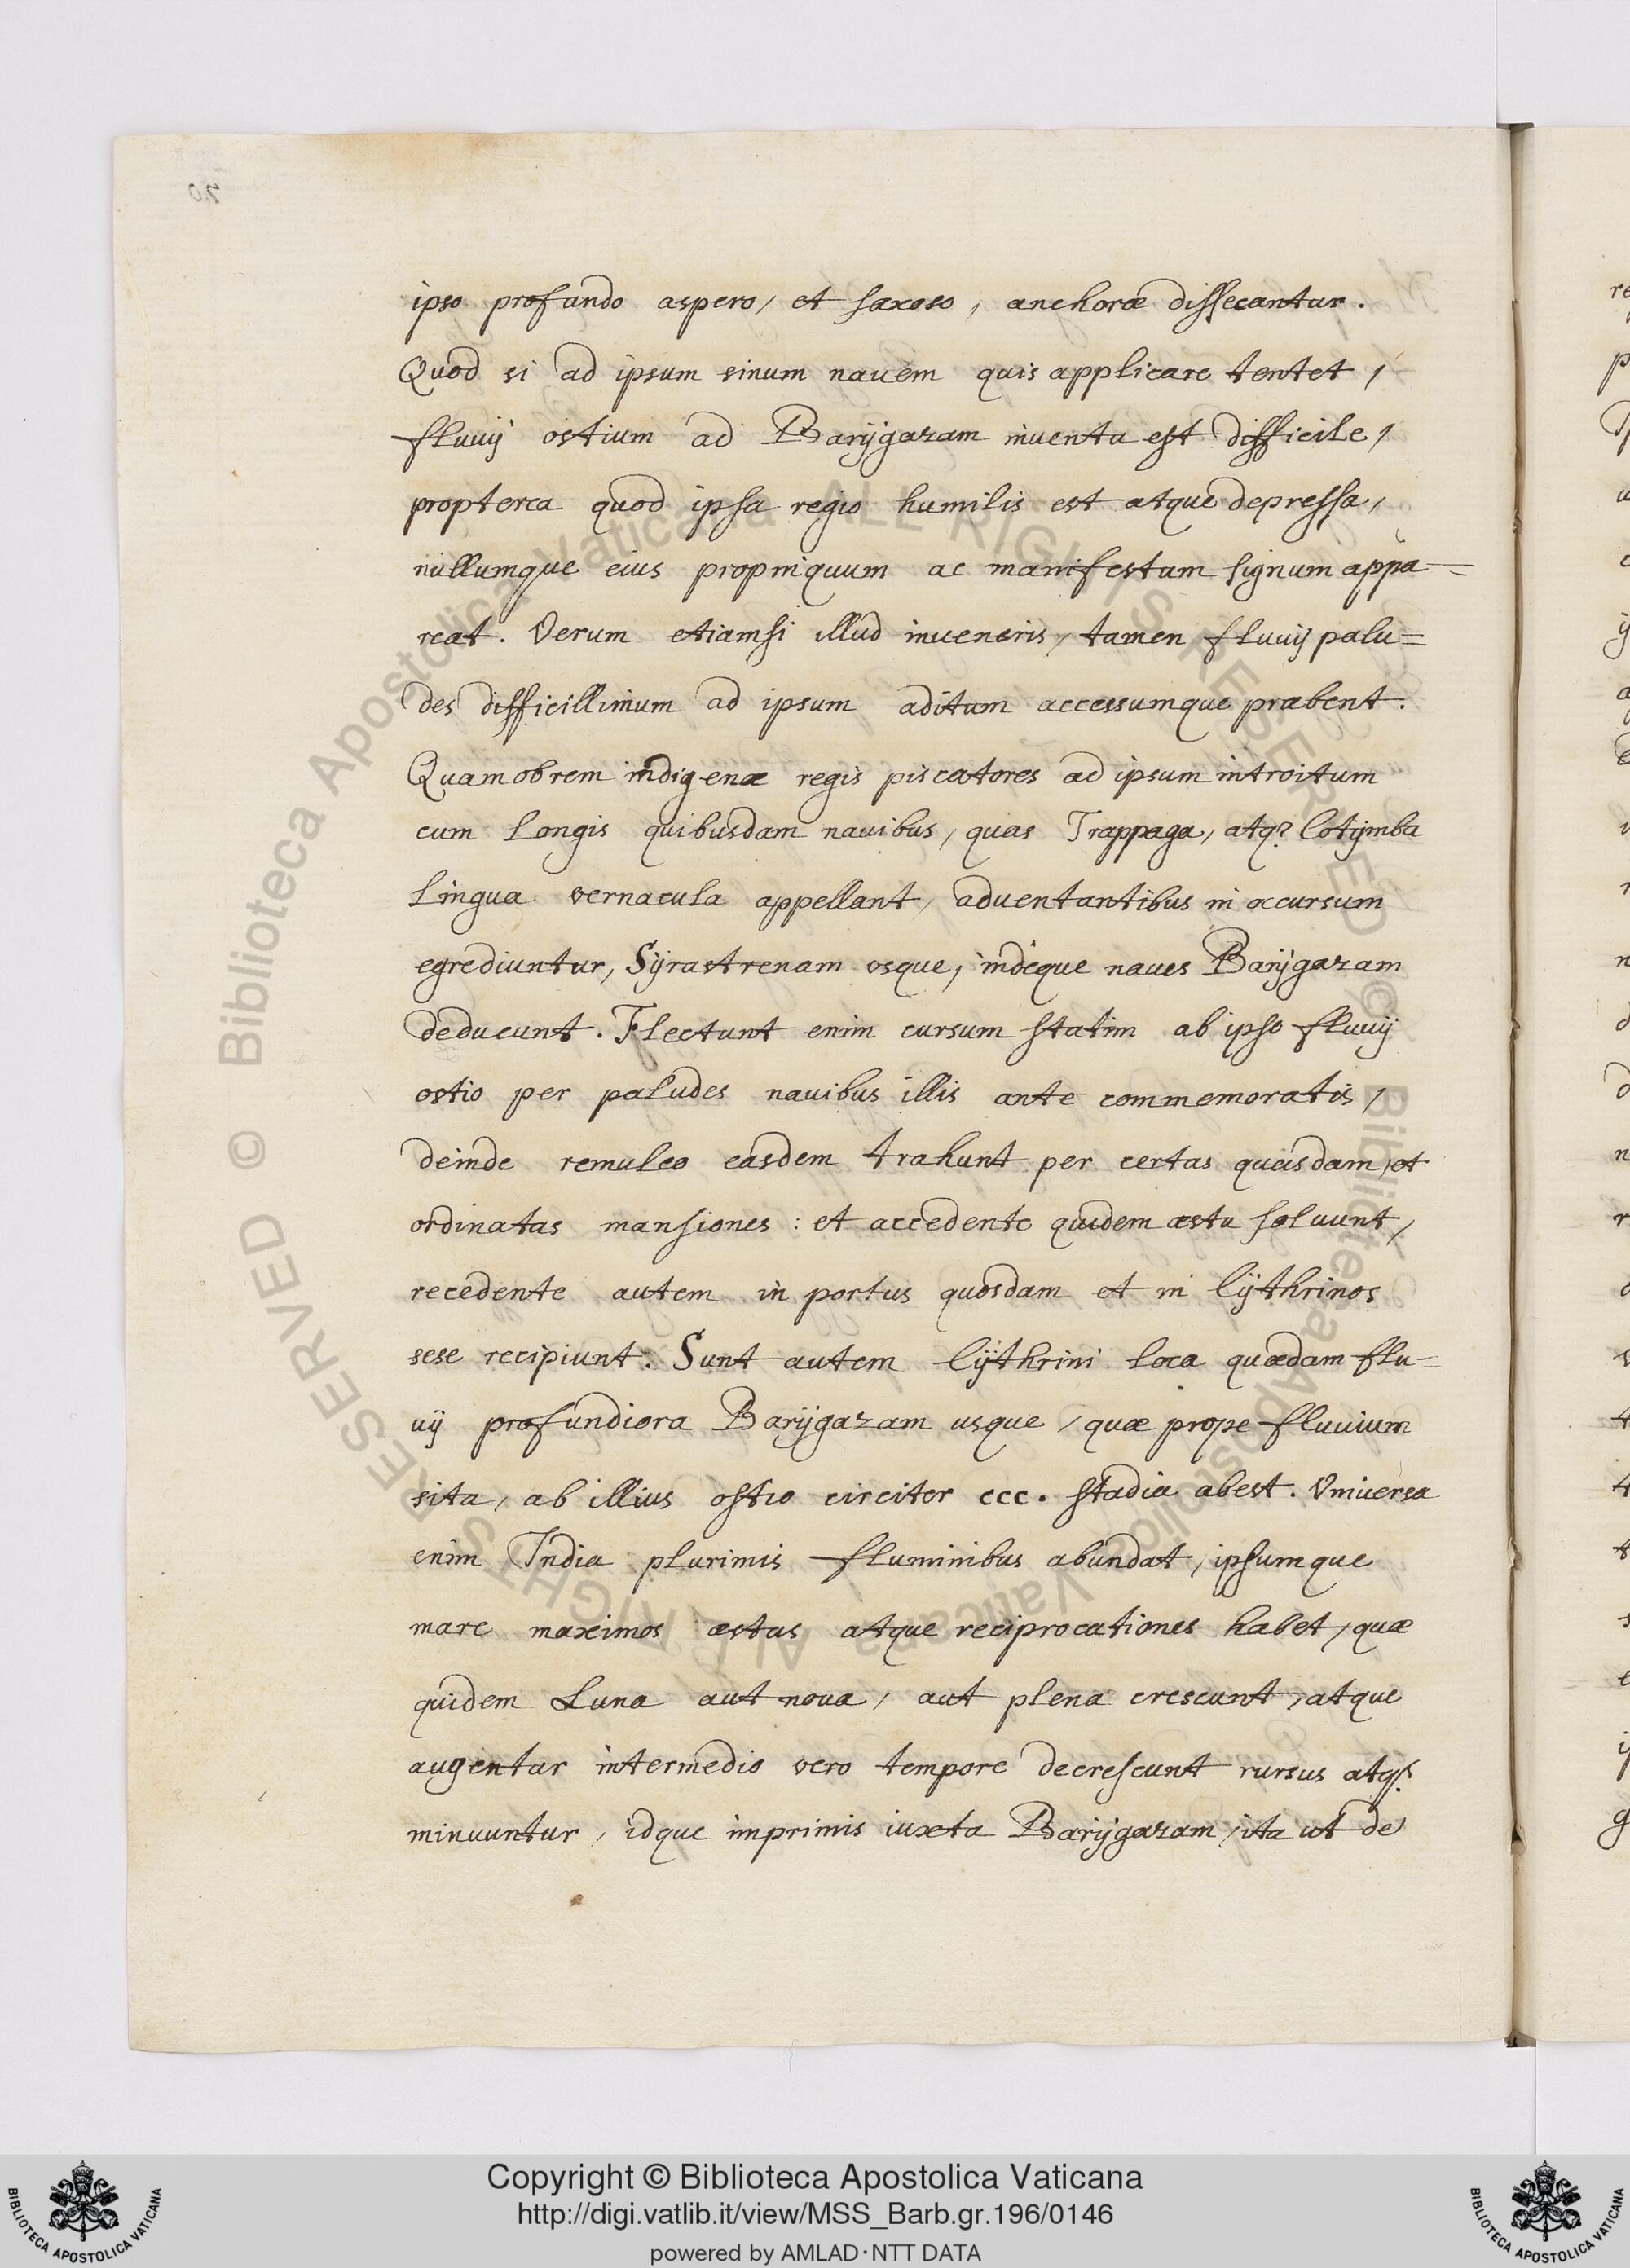 ipso profundo aspero, et saxoso, anchoræ dissecantur.
Quod si ad ipsum sinum nauem quis applicare tentet,
fluuij ostium ad Barÿgazam inuentu est difficile,
propterea quod ipsa regio humilis est atque depressa,
nullumque eius propinquum ac manifestum signum appa=
reat. Verum etiamsi illud inueneris, tamen fluuij palu=
des difficillimum ad ipsum aditum accessumque præbent.
Quamobrem indigenæ regis piscatores ad ipsum introitum
cum longis quibusdam nauibus, quas Trappaga, atq; Cotÿmba
lingua vernacula appellant, aduentantibus in occursum
egrediuntur, Sÿrastrenam vsque, indeque naues Barÿgazam
deducunt. Flectunt enim cursum statim ab ipso fluuij
ostio per paludes nauibus illis ante commemoratis,
deinde remulco easdem trahunt per certas quasdam, et
ordinatas mansiones: et accedente quidem æstu soluunt,
recedente autem in portus quosdam et in Cÿthrinos
sese recipiunt. Sunt autem Cÿthrini loca quædam flu=
uij profundiora Barÿgazam usque, quæ prope fluuium
sita, ab illius ostio circiter ccc. stadia abest. Vniuersa
enim India plurimis fluminibus abundat, ipsumque
mare maximos æstus atque reciprocationes habet, quæ
quidem Luna aut noua, aut plena crescunt, atque
augentur intermedio vero tempore decrescunt rursus atq;
minuuntur, idque imprimis iuxta Barÿgazam, ita ut de
20
© Biblioteca Apostolica Vaticana ALL RIGHTS RESERVED © Biblioteca Apostolica Vaticana ALL RIGHTS RESERVED
Copyright © Biblioteca Apostolica Vaticana
http://digi.vatlib.it/view/MSS_Barb.gr.196/0146
powered by AMLAD·NTT DATA
BIBLIOTECA APOSTOLICA VATICANA
BIBLIOTECA APOSTOLICA VATICANA